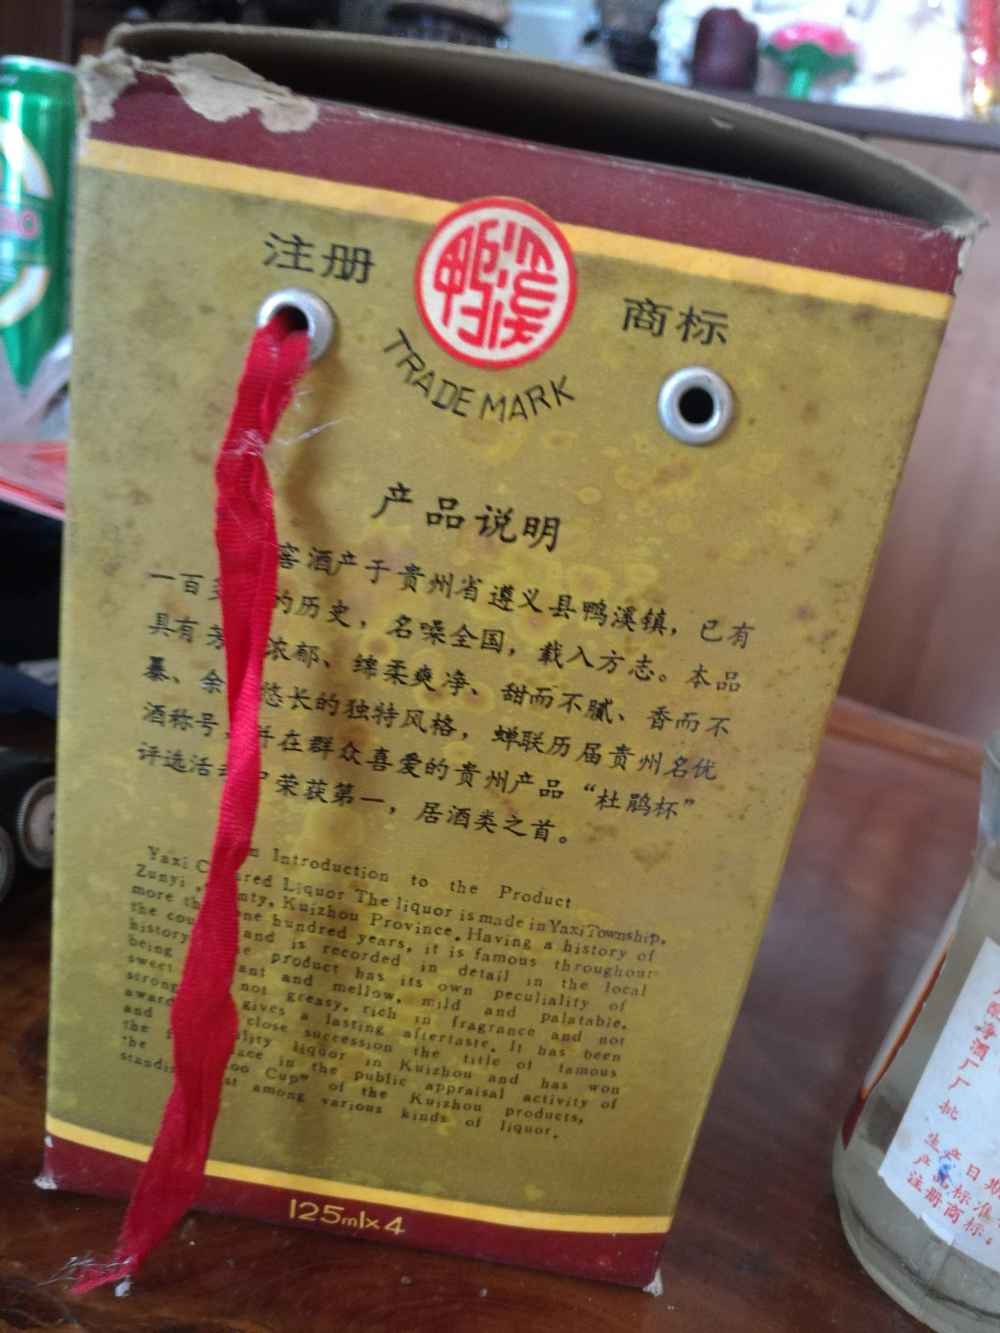 注册
鸭溪
商标
TRADE MARK
产品说明
窖酒产于贵州省遵义县鸭溪镇，已有
一百 的历史，名嗓全国，载入方志。本品
具有 浓郁、绵柔爽净、甜而不腻、香而不
暴、余 悠长的独特风格，蝉联历届贵州名优
酒称号，并在群众喜爱的贵州产品“杜鹃杯”
评选活 中荣获第一，居酒类之首。
Introduction to the Product
Yaxi Liquor The liquor is made in Yaxi Township,
Zunyi Kuizhou Province. Having a history of
more one hundred years, it is famous throughout
the and is recorded in detail in the local
history product has its own peculiality of
being and mellow, mild and palatable,
sweet not greasy, rich in fragrance and not
strong gives a lasting aftertaste. It has been
close succession the title of famous
and liquor in Kuizhou and has won
the in the public appraisal activity of
the Cup" of the Kuizhou products,
among various kinds of liquor.
125ml×4
净酒厂
厂
批
生产日期
产 标准
注册商标：